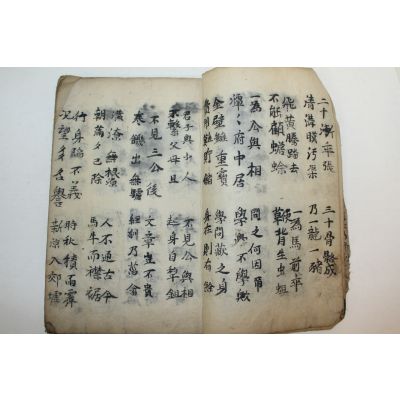 二十漸乖張 三十骨骼成
清溝映汚渠 乃一龍一猪
飛黃騰踏去 一為馬前卒
不能顧蟾蜍 背生虫蛆
一為公與相 問之何因爾
潭々府中居 學與不學歟
金璧雖重寶 學問藏之身
費用難貯儲 身在則有餘
君子與小人 不見公與相
不繫父母且 起身自犁鉏
不見三公後 文章豈不貴
寒饑出無驢 經訓乃菑畬
潢潦無根源 人不通古今
朝滿夕已除 馬牛而襟裾
行身陷不義 時秋積雨霽
况望多名譽 新凉入郊墟